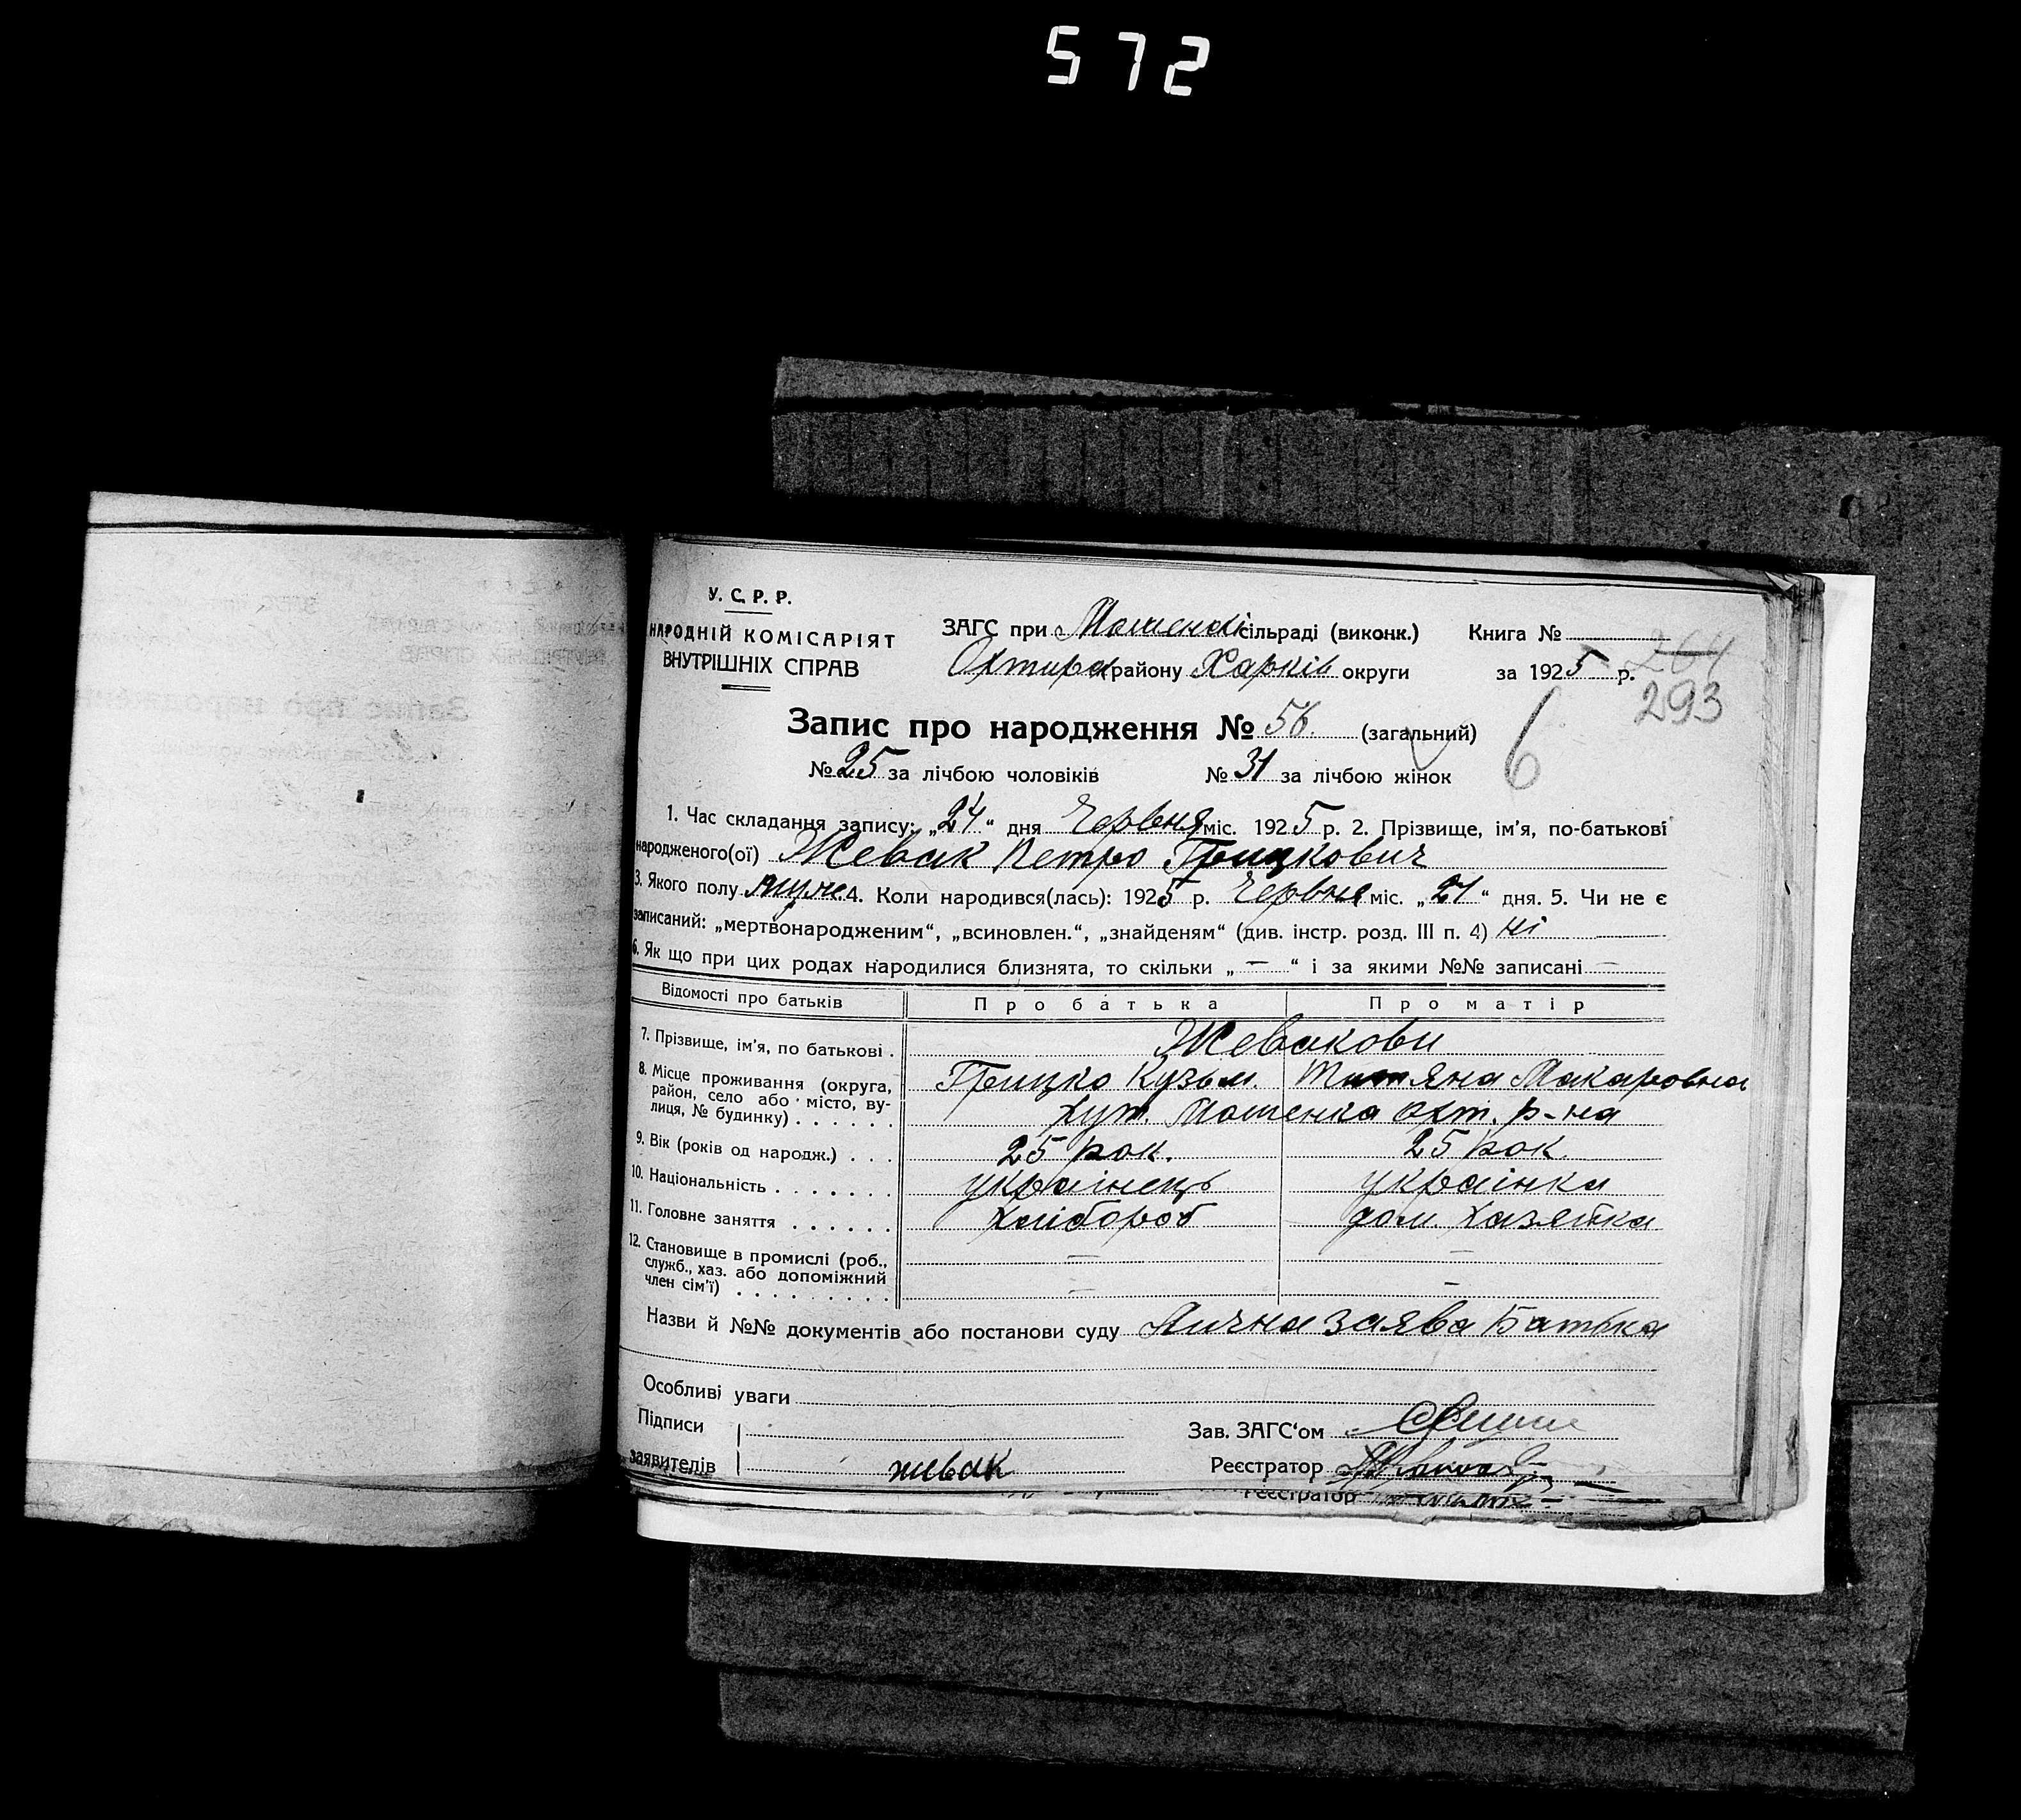 572
У. С. Р. Р.
НАРОДНІЙ КОМІСАРІЯТ
ВНУТРІШНІХ СПРАВ
ЗАГС при Мошенскі сільраді (виконк.) Книга №
Охтирск району Харків округи за 1925 р.
264
293
Запис про народження № 56. (загальний) 6
№ 25 за лічбою чоловіків № 31 за лічбою жінок
1. Час складання запису: „24“ дня Червня міс. 1925 р. 2. Прізвище, ім'я, по-батькові
народженого(ої) Жевак Петро Грицкович
3. Якого полу муж. 4. Коли народився(лась): 1925 р. Червня міс. „21“ дня. 5. Чи не є
записаний: „мертвонародженим“, „всиновлен.“, „знайденям“ (див. інстр. розд. III п. 4) Ні
6. Як що при цих родах народилися близнята, то скільки „ — “ і за якими №№ записані —
Відомості про батьків Про батька Про матір
7. Прізвище, ім'я, по батькові . Жевакови
Грицко Кузьм. Татяна Макаровна
8. Місце проживання (округа,
район, село або місто, ву-
лиця, № будинку) . . . . . .
хут. Мошенка Охт. р-на
9. Вік (років од народж.) . . . 25 рок. 25 рок.
10. Національність . . . . . . . українець українка
11. Головне заняття . . . . . . хлібороб дом. хазяйка
12. Становище в промислі (роб., — —
служб., хаз. або допоміжний
член сім'ї) . . . . . . . . . — —
Назви й №№ документів або постанови суду Лична заява Батька
Особливі уваги
Підписи Зав. ЗАГС'ом
заявителів жевак Реєстратор
Реєстратор